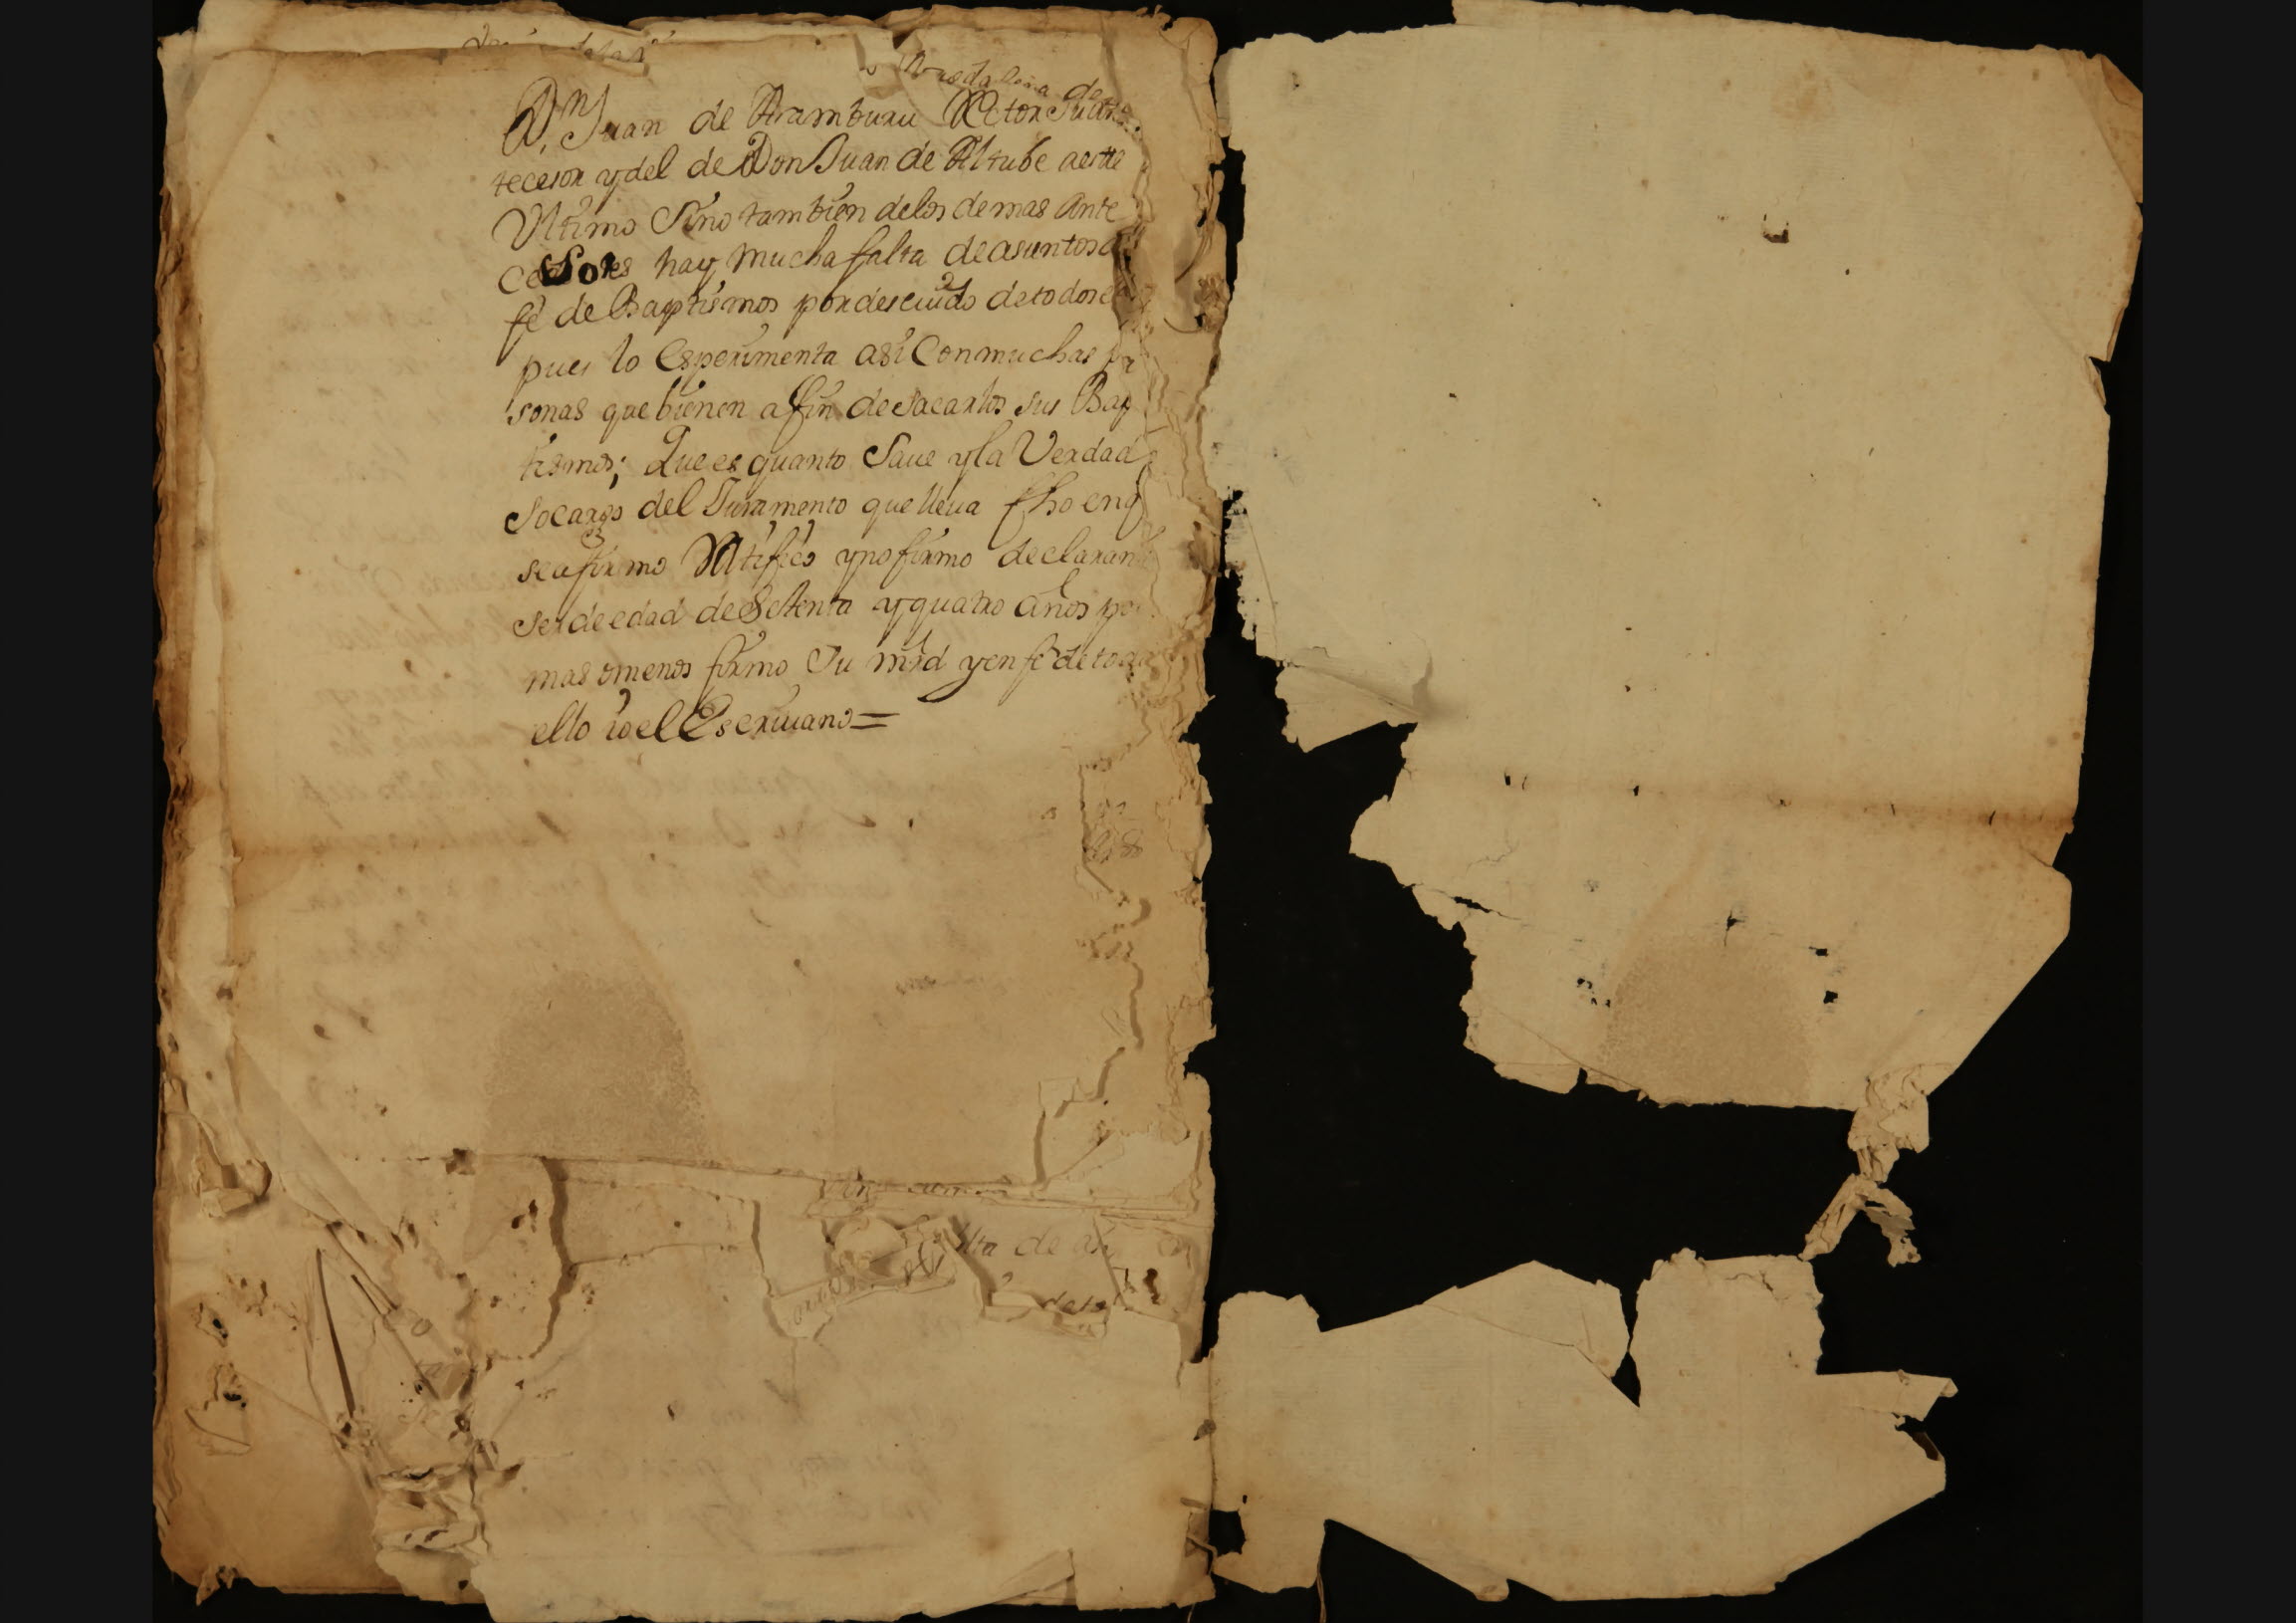 Dn Juan de Aramburu Retor Su an
tecesor y del de Don Juan de Altube a este
Vltimo Sino tambien delos demas Ante
cesores hay mucha falta de asuntos
fé de Baptismos por descuido de todos
pues lo Esperimenta asi Con muchas per
sonas que bienen a fin de sacarlos sus Bap
tismos; Que es quanto Saue y la Verdad
So cargo del Juramento que lleua fho en q
se afirmo Ratifico y no firmo declaran
ser de edad de Setenta y quatro años po
mas omenos firmo Su mrd y en fe de todo
ello io el Escriuano=
lta de